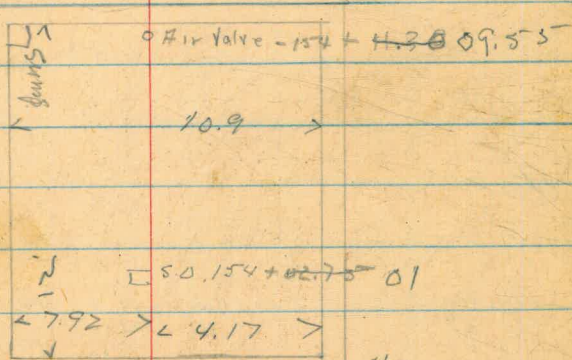 Air Valve - 154 + 11.30 09.55
10.9
S.O. 154 + 02.75 01
7.92
4.17